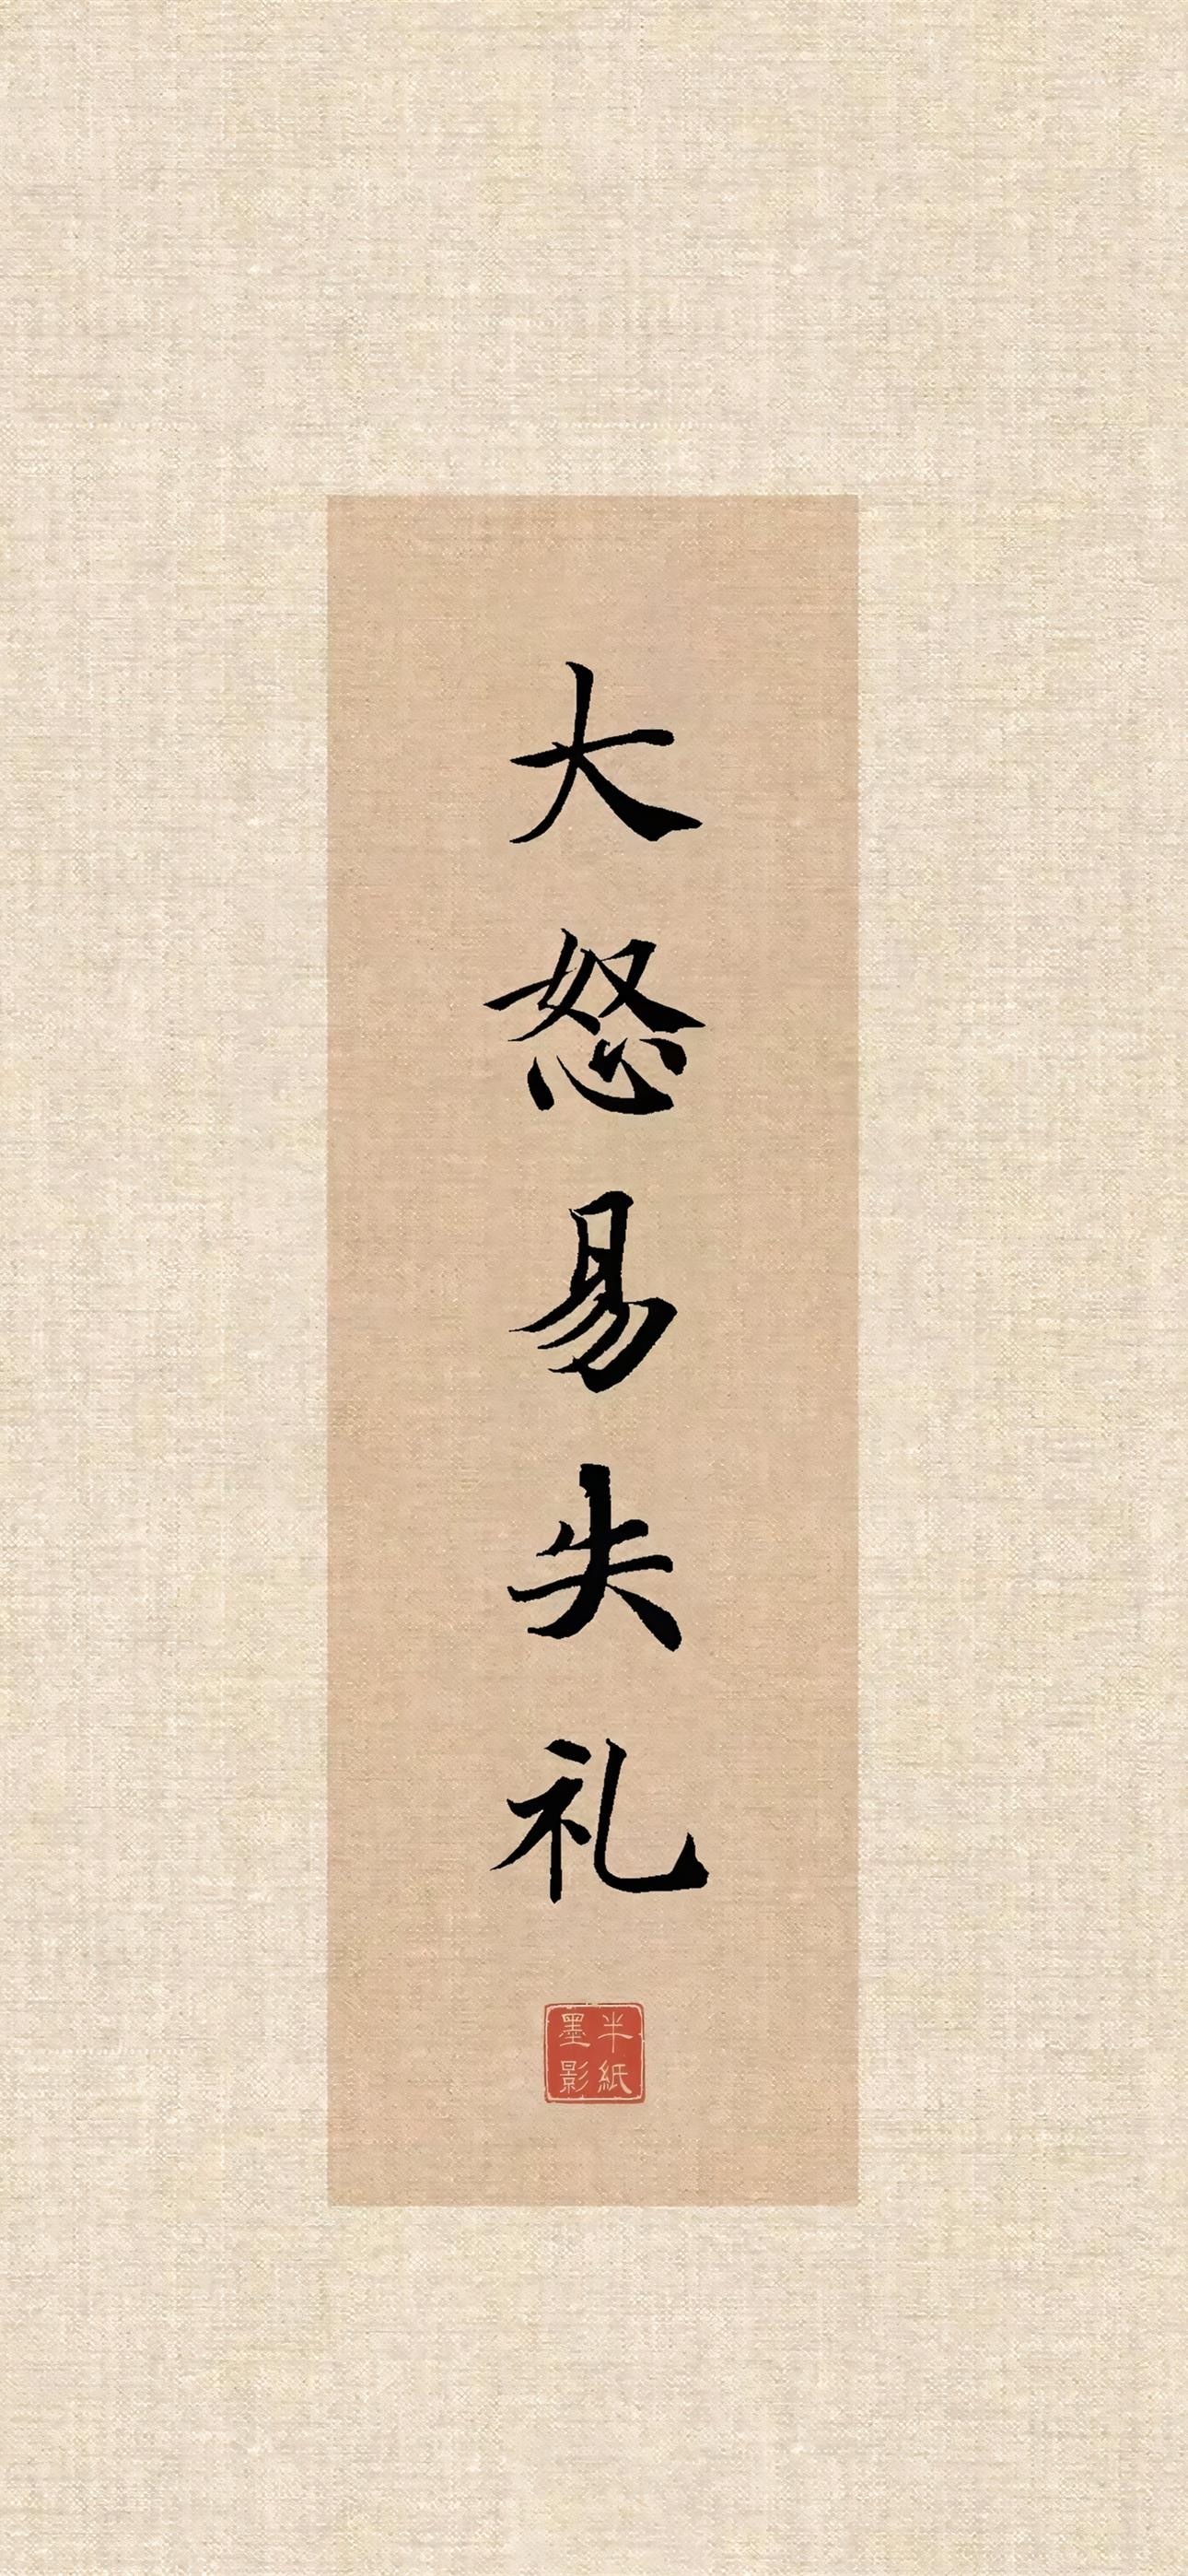 大怒易失礼
半紙
墨影